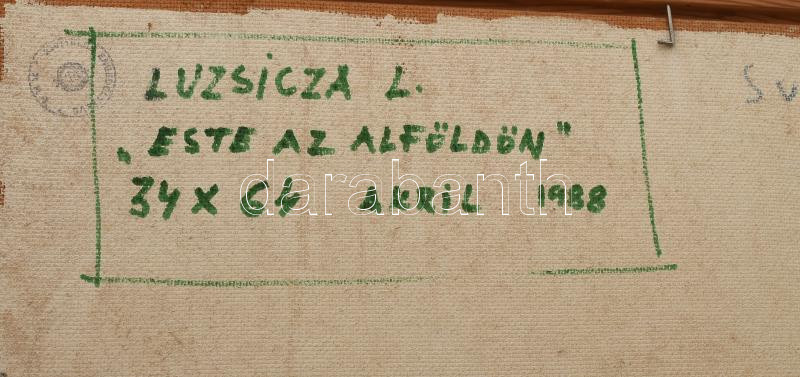 LUZSICZA L.
„ESTE AZ ALFÖLDÖN"
34 X 64 AKRIL 1988
darabanth